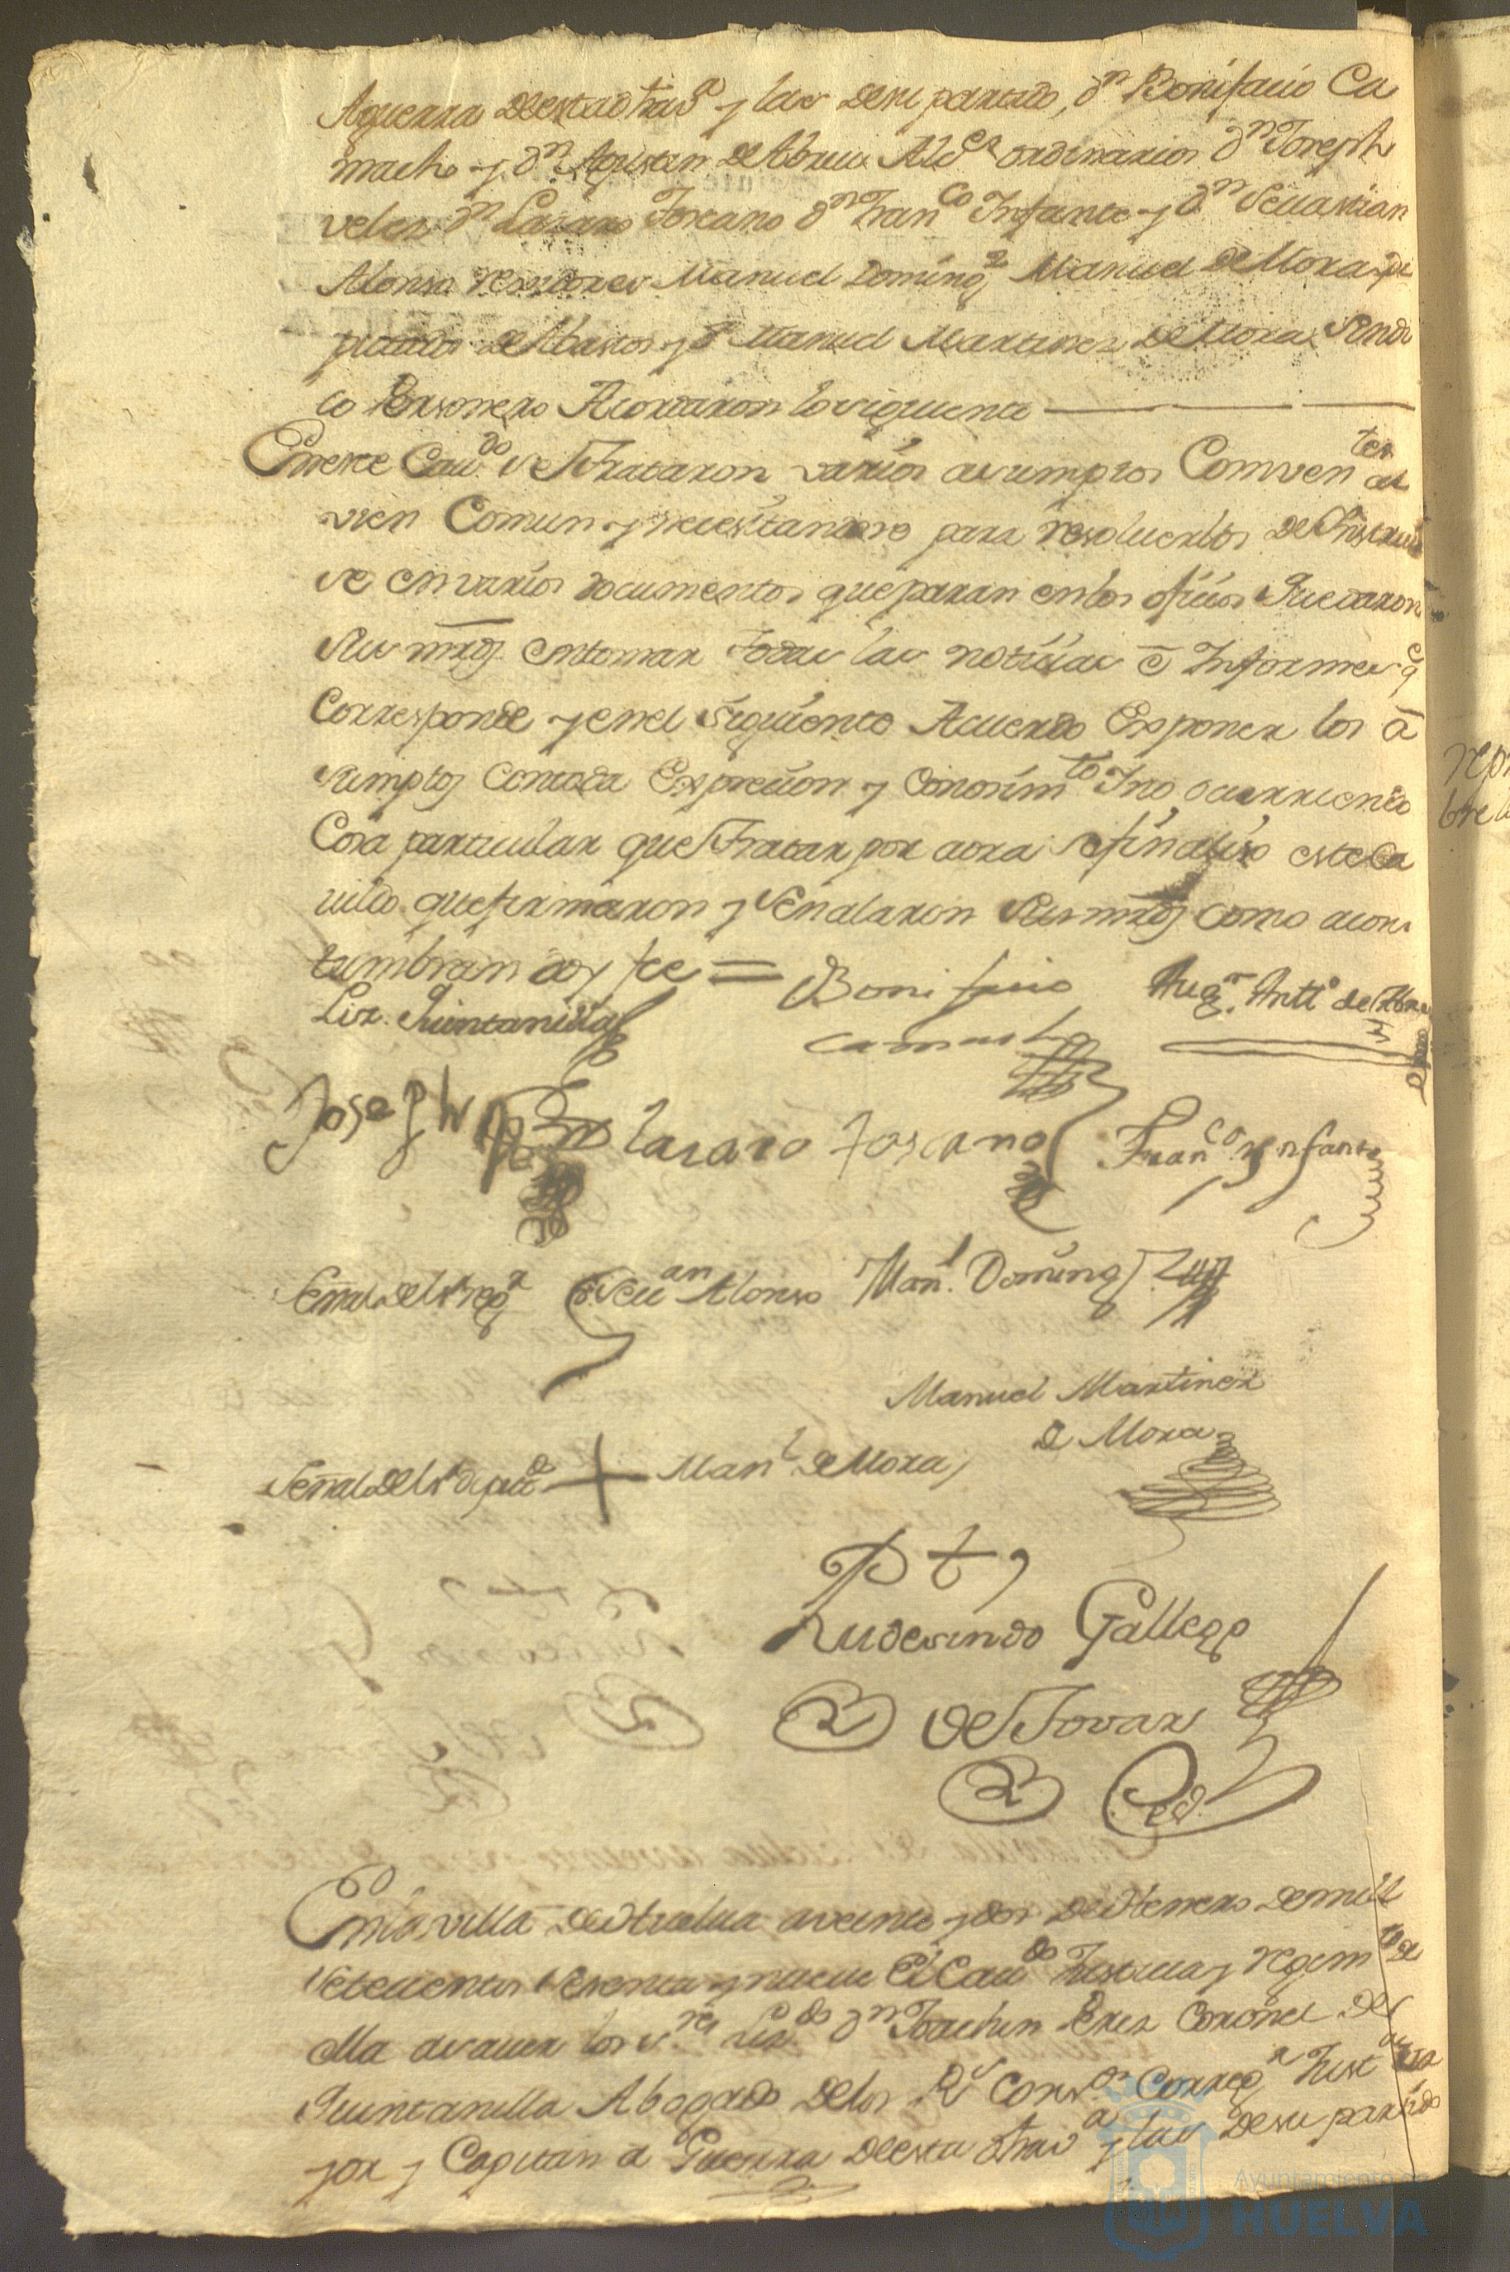 Aguerra de esta dha vª y las de su partado, Dn Bonifacio Ca
macho y Dn Agustan de Abreu Aldes ordinarios Dn Joseph
velez Dn Lazaro Toscano Dn Franco Infante y Dn Sevastian
Alonso rexidores Manuel Doming.z Manuel de Mora di
putados de Abastos y Dn Manuel Martinez de Mora Sindi
co Personero Acordaron lo siguiente
En este Cavdo se Trataron varios asumptos Comventes al
vien Comun y necesitandose para resoluerlos de Instruir
se en varios documentos que paran en los ofiios Quedaron
sus mrds en tomar todas las notiias e Informes q
Corresponde y en el siguiente Acuerdo Exponer los a
sumptos con toda Expresion y Conosimto I no ocurriendo
Cosa particular que Tratar por aora se finaliso este Ca
uildo que firmaron y señalaron sus mrds como acos
tumbran doy fee =
Liz. Quintanilla
Bonifacio
camacho
Augn Antto de Abreu
Joseph Velez
Lazaro Toscano
Franco Ynfante
Señal del Sr regr
Sevan Alonso
Manl Doming.z
Manuel Martinez
de Mora
Señal del Sr diputdo
+
Manl de Mora
Rudesindo Gallego
de Tovar
En la villa de Huelua a veinte y dos de Henero de mill
setecientos sesenta y nueue El Cavdo Justicia y regimto de
ella a saver los sres Lizdo Dn Joachin Perez Coronel de
Quintanilla Abogado de los Rs Consos Corregr Justa ma
yor y Capitan a Guerra de esta dha va y las de su partido
repr
bre
Ayuntamiento de
HUELVA